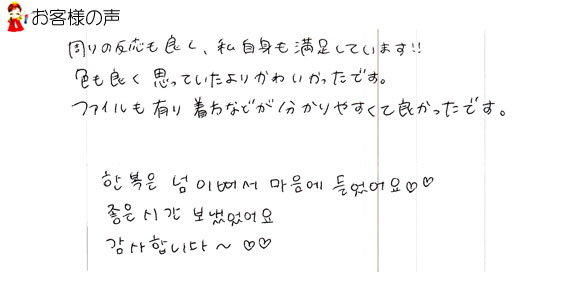 お客様の声
周りの反応も良く、私自身も満足しています!!
色も良く思っていたよりかわいかったです。
ファイルも有り着方などが分かりやすくて良かったです。
한복은 넘 이뻐서 마음에 들었어요♡♡
좋은 시간 보냈었어요
감사합니다～ ♡♡